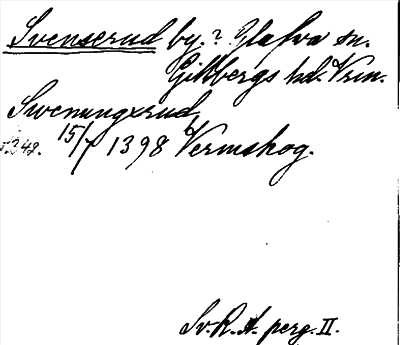 Svenserud by.? Glafva sn.
Gillbergs hd. Vrm.
Swenungxrud
342. 15/7 1398 Vermskog.
Sv. R. A. perg. II.